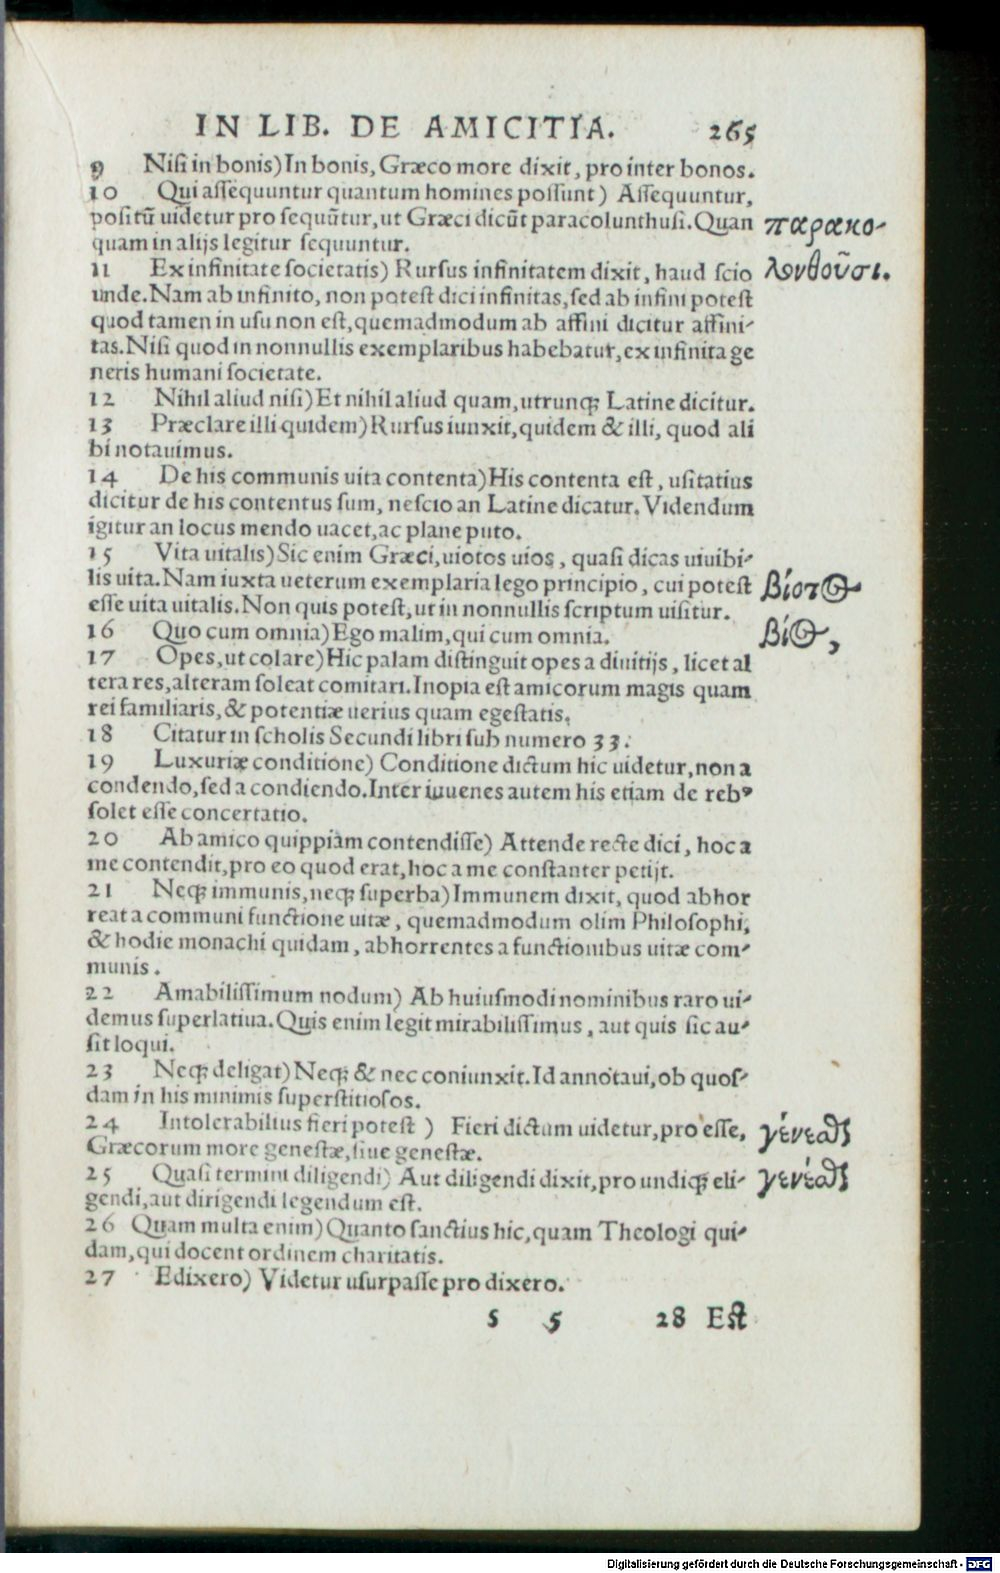 IN LIB. DE AMICITIA. 265
9 Niſi in bonis) In bonis, Græco more dixit, pro inter bonos.
10 Qui aſſequuntur quantum homines poſſunt) Aſſequuntur,
poſitũ uidetur pro ſequũtur, ut Græci dicũt paracolunthuſi. Quan παρακο-
quam in alijs legitur ſequuntur.
11 Ex infinitate ſocietatis) Rurſus infinitatem dixit, haud ſcio λουθοῦσι.
unde. Nam ab infinito, non poteſt dici infinitas, ſed ab infini poteſt
quod tamen in uſu non eſt, quemadmodum ab affini dicitur affini-
tas. Niſi quod in nonnullis exemplaribus habebatur, ex infinita ge
neris humani ſocietate.
12 Nihil aliud niſi) Et nihil aliud quam, utrunq; Latine dicitur.
13 Præclare illi quidem) Rurſus iunxit, quidem & illi, quod ali
bi notauimus.
14 De his communis uita contenta) His contenta eſt, uſitatius
dicitur de his contentus ſum, neſcio an Latine dicatur. Videndum
igitur an locus mendo uacet, ac plane puto.
15 Vita uitalis) Sic enim Græci, uiotos uios, quaſi dicas uiuibi-
lis uita. Nam iuxta ueterum exemplaria lego principio, cui poteſt βίοτος
eſſe uita uitalis. Non quis poteſt, ut in nonnullis ſcriptum uiſitur.
16 Quo cum omnia) Ego malim, qui cum omnia. βίος,
17 Opes, ut colare) Hic palam diſtinguit opes a diuitijs, licet al
tera res, alteram ſoleat comitari. Inopia eſt amicorum magis quam
rei familiaris, & potentiæ uerius quam egeſtatis.
18 Citatur in ſcholis Secundi libri ſub numero 33.
19 Luxuriæ conditione) Conditione dictum hic uidetur, non a
condendo, ſed a condiendo. Inter iuuenes autem his etiam de rebꝰ
ſolet eſſe concertatio.
20 Ab amico quippiam contendiſſe) Attende recte dici, hoc a
me contendit, pro eo quod erat, hoc a me conſtanter petijt.
21 Neq; immunis, neq; ſuperba) Immunem dixit, quod abhor
reat a communi functione uitæ, quemadmodum olim Philoſophi,
& hodie monachi quidam, abhorrentes a functionibus uitæ com-
munis.
22 Amabiliſſimum nodum) Ab huiuſmodi nominibus raro ui-
demus ſuperlatiua. Quis enim legit mirabiliſſimus, aut quis ſic au-
ſit loqui.
23 Neq; deligat) Neq; & nec coniunxit. Id annotaui, ob quoſ-
dam in his minimis ſuperſtitioſos.
24 Intolerabilius fieri poteſt) Fieri dictum uidetur, pro eſſe, γένεσθαι
Græcorum more geneſtæ, ſiue geneſtæ.
25 Quaſi termini diligendi) Aut diligendi dixit, pro undiq; eli- γενέσθαι
gendi, aut dirigendi legendum eſt.
26 Quam multa enim) Quanto ſanctius hic, quam Theologi qui-
dam, qui docent ordinem charitatis.
27 Edixero) Videtur uſurpaſſe pro dixero.
s 5 28 Eſt
Digitalisierung gefördert durch die Deutsche Forschungsgemeinschaft - DFG